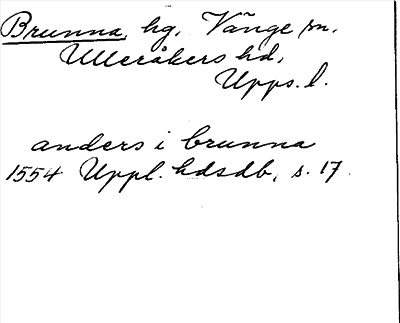 Brunna, hg, Vänge sn,
Ulleråkers hd,
Upps. l.
anders i brunna
1554 Uppl. hdsdb, s. 17.